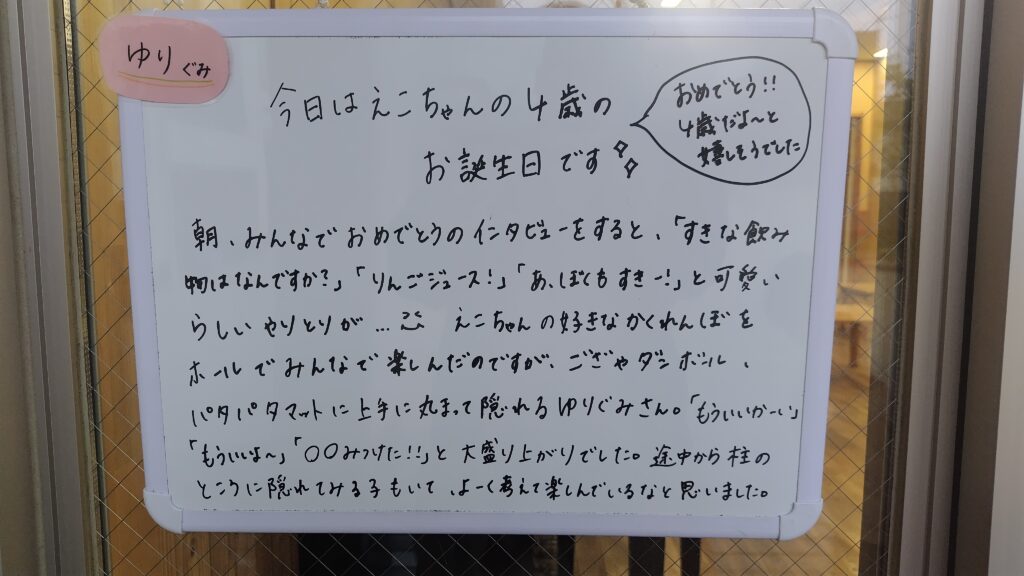 ゆりぐみ
今日はえこちゃんの4歳の
お誕生日です
おめでとう!!
4歳だよ〜と
嬉しそうでした
朝、みんなでおめでとうのインタビューをすると、「すきな飲み
物はなんですか?」「りんごジュース!」「あ、ぼくもすきー!」と可愛い
らしいやりとりが… えこちゃんの好きなかくれんぼを
ホールでみんなで楽しんだのですが、ござやダンボール、
パタパタマットに上手に丸まって隠れるゆりぐみさん。「もういいかーい」
「もういいよ〜」「〇〇みつけた!!」と大盛り上がりでした。途中から柱の
ところに隠れてみる子もいて、よーく考えて楽しんでいるなと思いました。